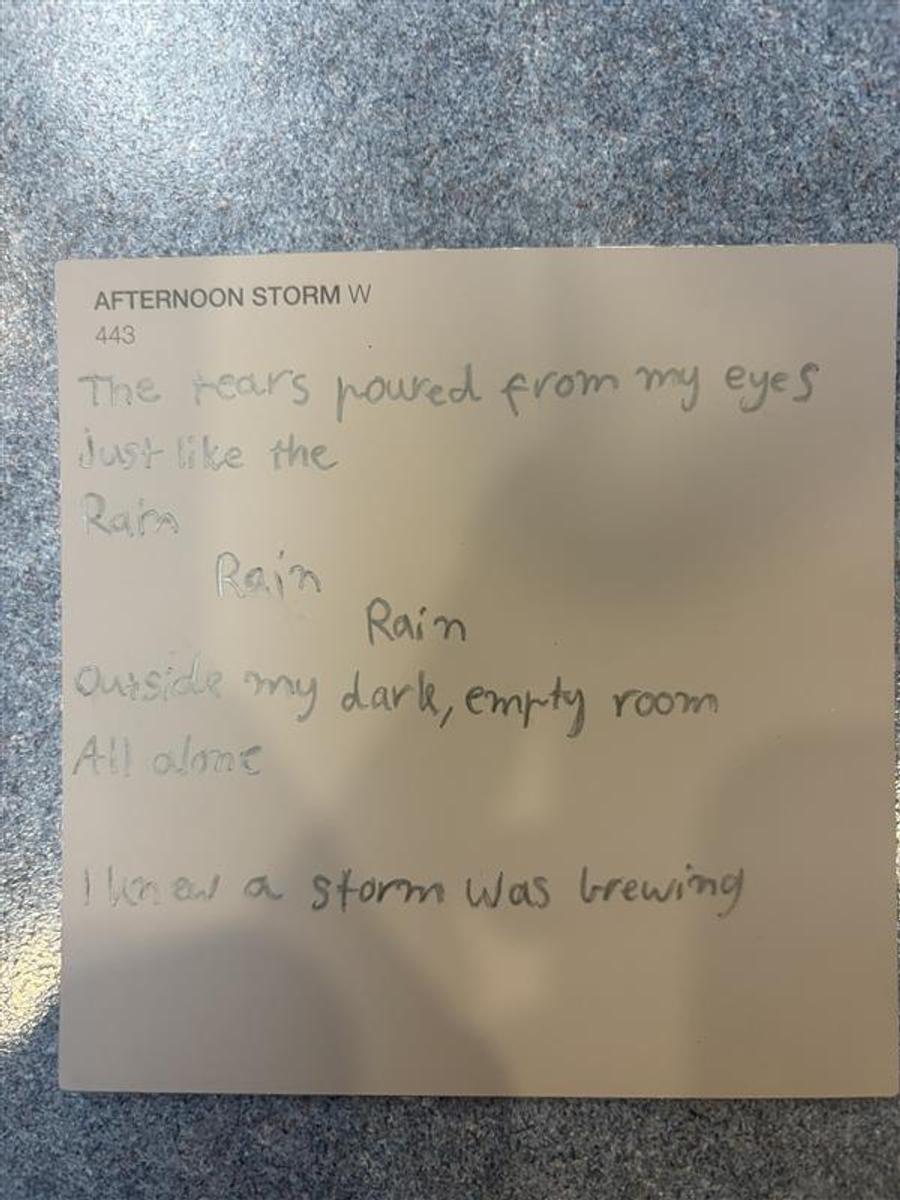 AFTERNOON STORM W
443
The tears poured from my eyes
just like the
Rain
Rain
Rain
Outside my dark, empty room
All alone
I knew a storm was brewing